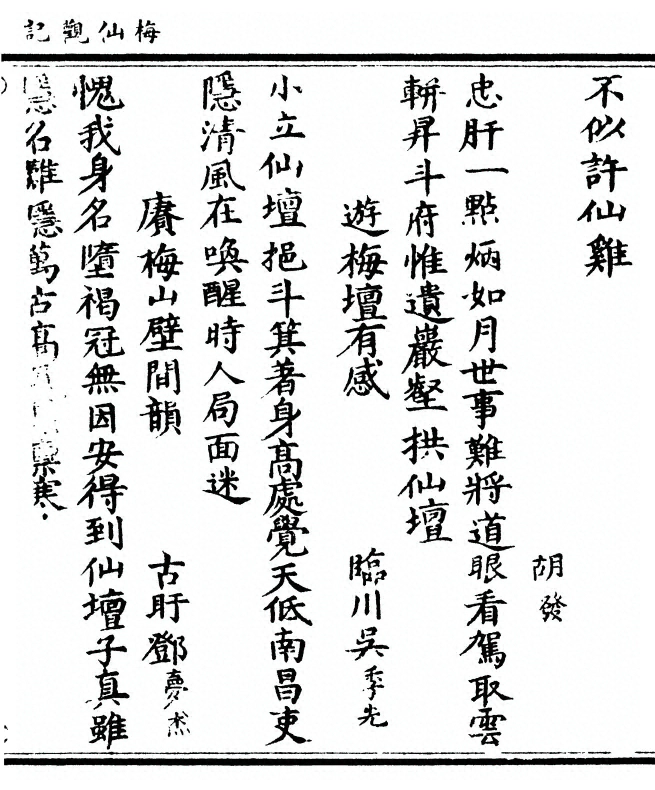 梅仙觀記
不似許仙雞
胡發
忠肝一點炳如月世事難將道眼看駕取雲
輧昇斗府惟遺巖壑拱仙壇
遊梅壇有感
臨川吳季先
小立仙壇挹斗箕著身髙處覺天低南昌吏
隱清風在喚醒時人局面迷
賡梅山壁間韻
古盱鄧夢杰
愧我身名墮褐冠無因安得到仙壇子真雖
隱名難隱萬古髙
寒